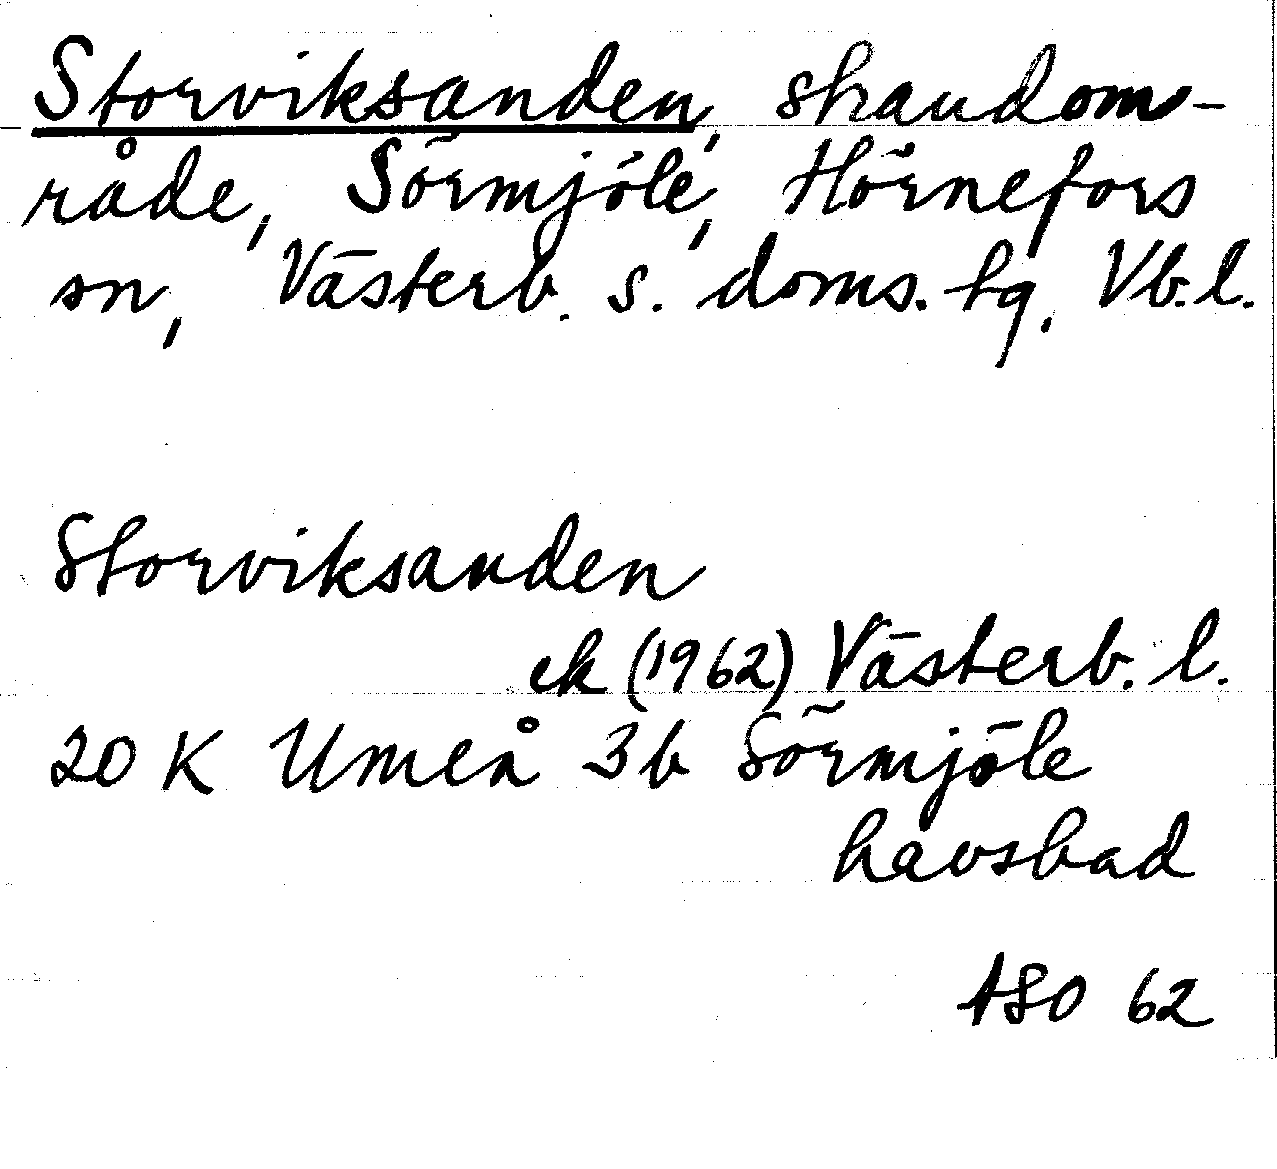 Storviksanden, strandom-
råde, Sörmjöle, Hörnefors
sn, Västerb. s. doms. tg. Vb. l.
Storviksanden
ek (1962) Västerb. l.
20 K Umeå 3b Sörmjöle
havsbad
ASO 62